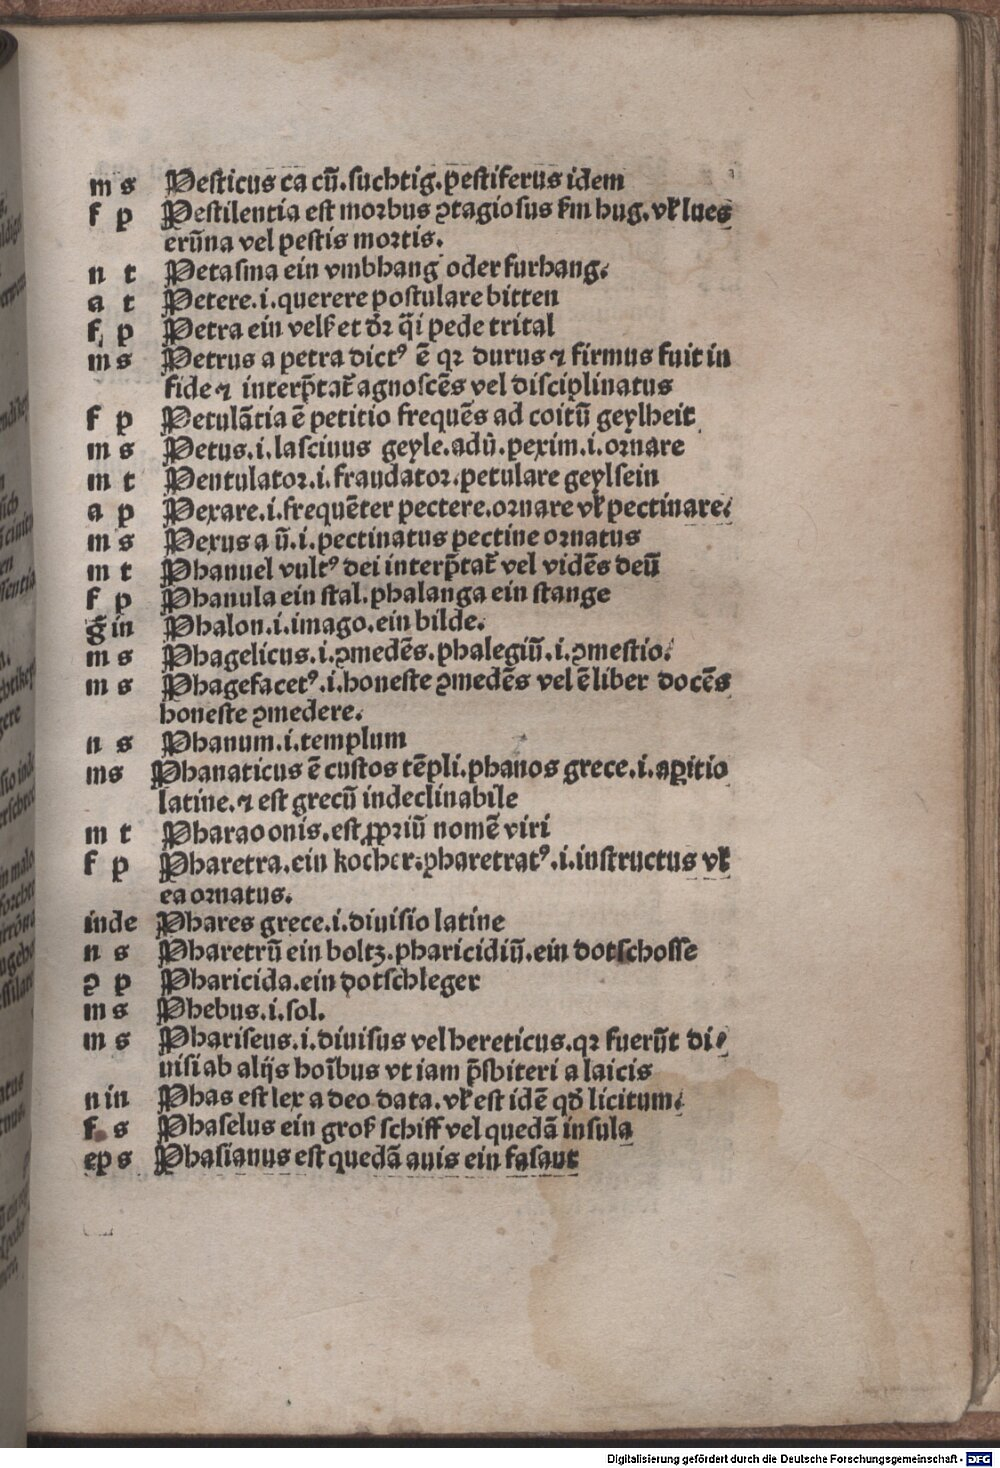 m s Pesticus ca cū.suchtig.pestiferus idem
f p Pestilentia est morbus ꝯtagiosus ẜm hug. vł lues
erūna vel pestis mortis.
n t Petasma ein vmbhang oder furhang.
a t Petere.i.querere postulare bitten
f p Petra ein velß et dr̄ q̄i pede trital
m s Petrus a petra dictꝰ ē qꝛ durus ⁊ firmus fuit in
fide ⁊ interp̄tat᷑ agnoscēs vel disciplinatus
f p Petulātia ē petitio frequēs ad coitū geylheit
m s Petus.i.lasciuus geyle.adū.pexim.i.ornare
m t Pentulator.i.fraudator.petulare geylsein
a p Pexare.i.frequēter pectere.ornare vł pectinare.
m s Pexus a ū.i.pectinatus pectine ornatus
m t Phanuel vultꝰ dei interp̄tat᷑ vel vidēs deū
f p Phanula ein stal.phalanga ein stange
ḡ in Phalon.i.imago.ein bilde.
m s Phagelicus.i.ꝯmedēs.phalegiū.i.ꝯmestio.
m s Phagefacetꝰ.i.honeste ꝯmedēs vel ē liber docēs
honeste ꝯmedere.
n s Phanum.i.templum
ms Phanaticus ē custos tēpli.phanos grece.i.aꝑitio
latine.⁊ est grecū indeclinabile
m t Pharao onis.est ꝓpriū nomē viri
f p Pharetra.ein kocher.pharetratꝰ.i.instructus vł
ea ornatus.
inde Phares grece.i.diuisio latine
n s Pharetrū ein boltz.pharicidiū.ein dotschosse
ꝯ p Pharicida.ein dotschleger
m s Phebus.i.sol.
m s Phariseus.i.diuisus vel hereticus.qꝛ fuerūt di⸗
uisi ab alijs hoībus vt iam p̄sbiteri a laicis
n in Phas est lex a deo data.vł est idē qd̄ licitum.
f s Phaselus ein groß schiff vel quedā insula
ep s Phasianus est quedā auis ein fasant
Digitalisierung gefördert durch die Deutsche Forschungsgemeinschaft - DFG